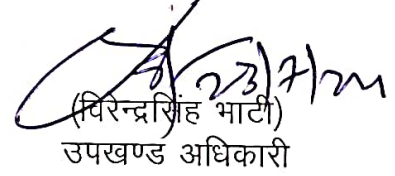 23/7/24
(विरेन्द्रसिंह भाटी)
उपखण्ड अधिकारी